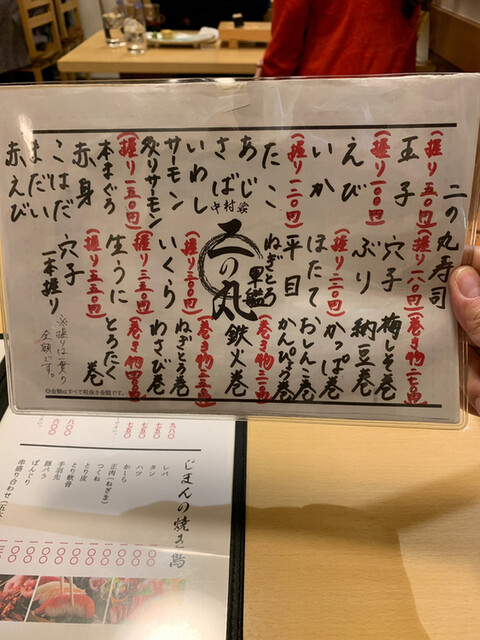 二の丸寿司
(握り 五〇円)
玉子
(握り 一〇〇円)
えび
いか
(握り 一二〇円)
たこ
あじ
さば
いわし
サーモン
炙りサーモン
(握り 一五〇円)
本まぐろ
赤身
こはだ
まだい
赤えび
(握り 一八〇円)
穴子
ぶり
ほたて
平目
ねぎとろ軍艦
中村家
二の丸
いくら
(握り 三五〇円)
生うに
(握り 五五〇円)
穴子
一本握り
※握りは一貫の
金額です。
(巻き物 二七〇円)
梅しそ巻
納豆巻
かっぱ巻
おしんこ巻
かんぴょう巻
鉄火巻
ねぎとろ巻
わさび巻
(巻き物 四〇〇円)
とろたく巻
◎金額はすべて税抜き金額です。
じまんの焼き鳥
レバ
タン
ハツ
かしら
正肉(ねぎま)
つくね
とり皮
とり軟骨
手羽先
豚バラ
ぼんじり
串盛り合わせ
九八〇
七五〇
七五〇
八〇〇
八〇〇